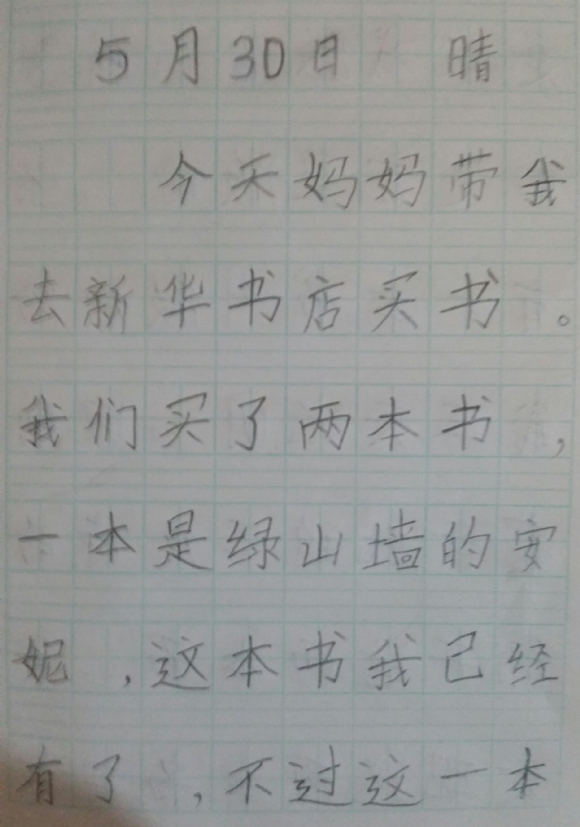 5月30日 晴
今天妈妈带我
去新华书店买书。
我们买了两本书,
一本是绿山墙的安
妮,这本书我已经
有了,不过这一本